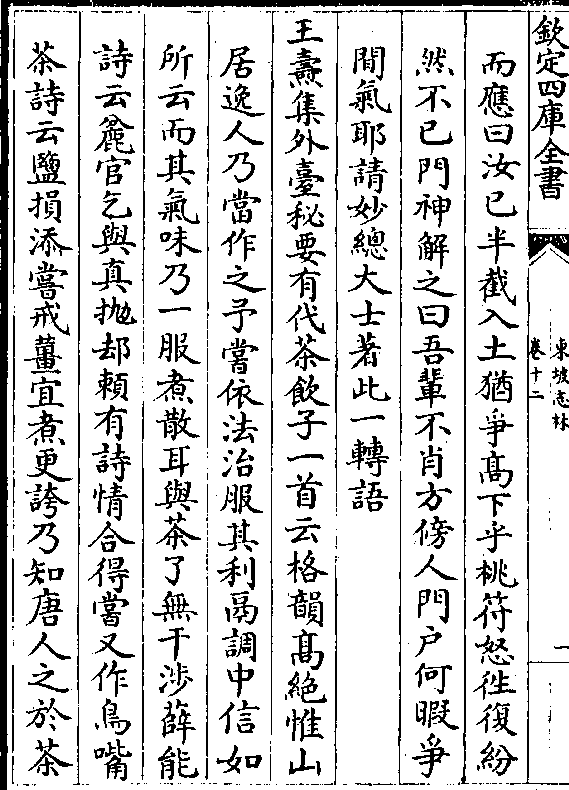 欽定四庫全書
東坡志林
卷十二
一
而應曰汝已半截入土猶爭髙下乎桃符怒徃復紛
然不已門神解之曰吾軰不肖方傍人門户何暇爭
閒氣耶請妙總大士著此一轉語
王燾集外臺秘要有代茶飲子一首云格韻髙絶惟山
居逸人乃當作之予嘗依法治服其利鬲調中信如
所云而其氣味乃一服煮散耳與茶了無干渉薛能
詩云麄官乞與真抛却頼有詩情合得嘗又作鳥嘴
茶詩云鹽損添嘗戒薑宜煮更誇乃知唐人之於茶